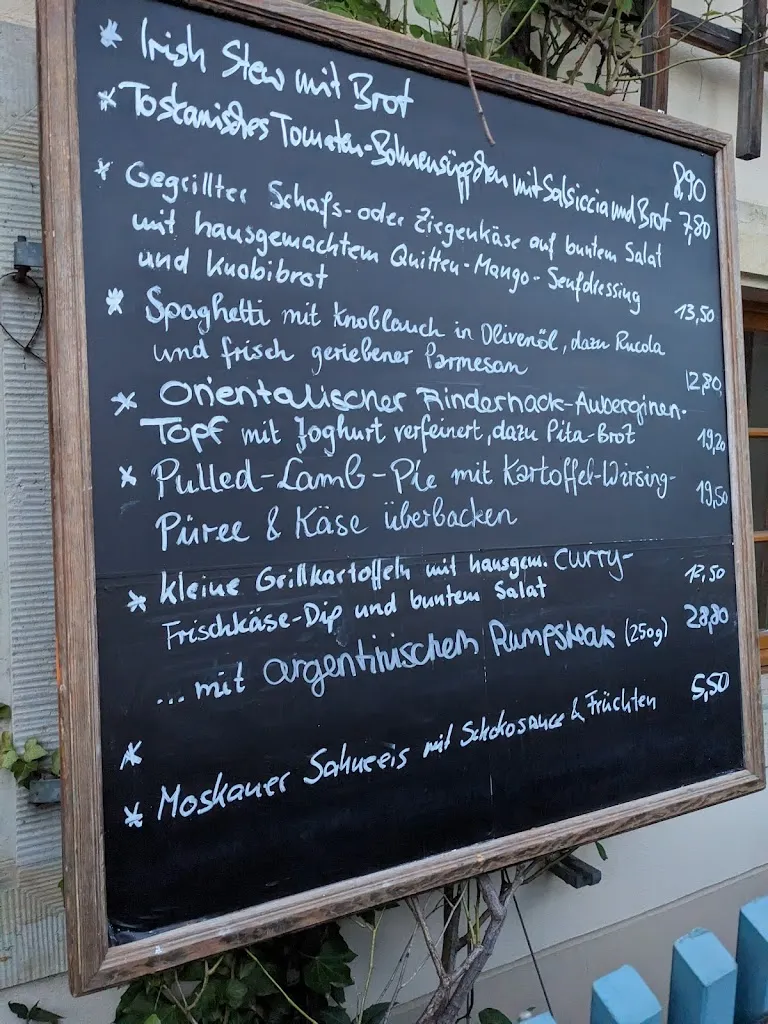 * Irish Stew mit Brot 8,90
* Toskanisches Tomaten-Bohnensüppchen mit Salsiccia und Brot 7,80
* Gegrillter Schafs- oder Ziegenkäse auf buntem Salat
mit hausgemachtem Quitten-Mango-Senfdressing
und Knobibrot 13,50
* Spaghetti mit Knoblauch in Olivenöl, dazu Rucola
und frisch geriebener Parmesan 12,80
* Orientalischer Rinderhack-Auberginen-
Topf mit Joghurt verfeinert, dazu Pita-Brot 19,20
* Pulled-Lamb-Pie mit Kartoffel-Wirsing- 19,50
Püree & Käse überbacken
* kleine Grillkartoffeln mit hausgem. Curry-
Frischkäse-Dip und buntem Salat 12,50
... mit argentinischem Rumpsteak (250g) 28,80
*
* Moskauer Sahneeis mit Schokosauce & Früchten 5,50